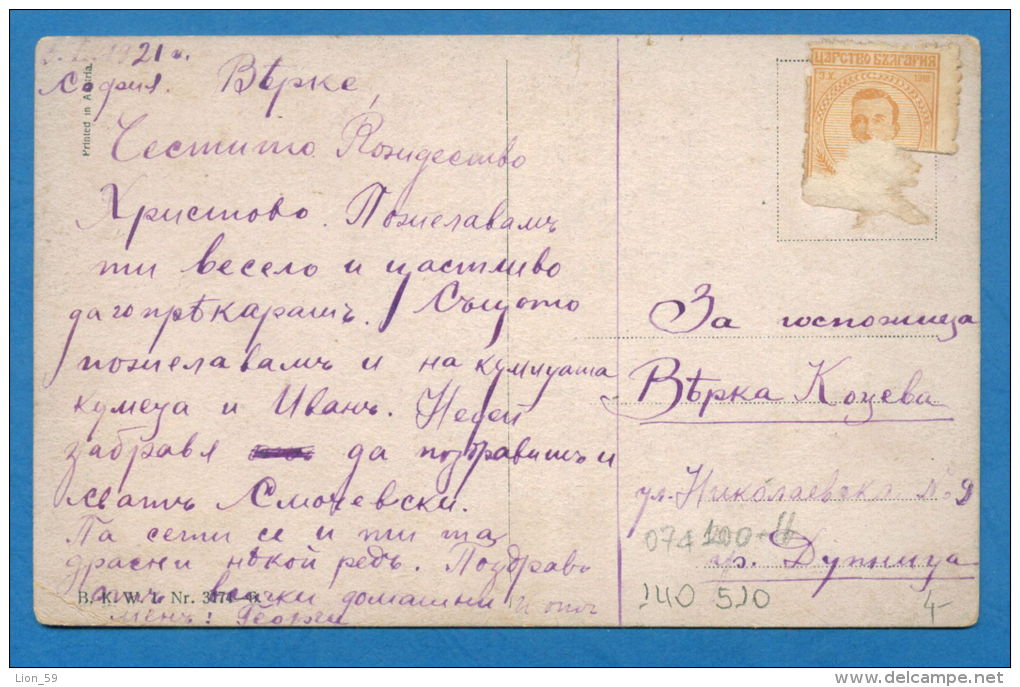 21 г.
София. Вѣрке,
Честито Рождество
Христово. Пожелавамъ
ти весело и щастливо
да го прѣкарашъ. Същото
пожелавамъ и на кумицата
кумеца и Иванъ. Недей
забравя да поздравишъ и
сватъ Смочевски.
Па сети се и ти та
драсни нѣкой редъ. Поздрав
всички домашни и отъ
менъ: Георги
Printed in Austria.
B. K. W. I. Nr. 3174
ЦАРСТВО БЪЛГАРИЯ
3.X. 1918
За госпожица
Вѣрка Коцева
ул. Николаевска №
гр. Дупница
074 100
140 510
4-
Lion_59
www.delcampe.net